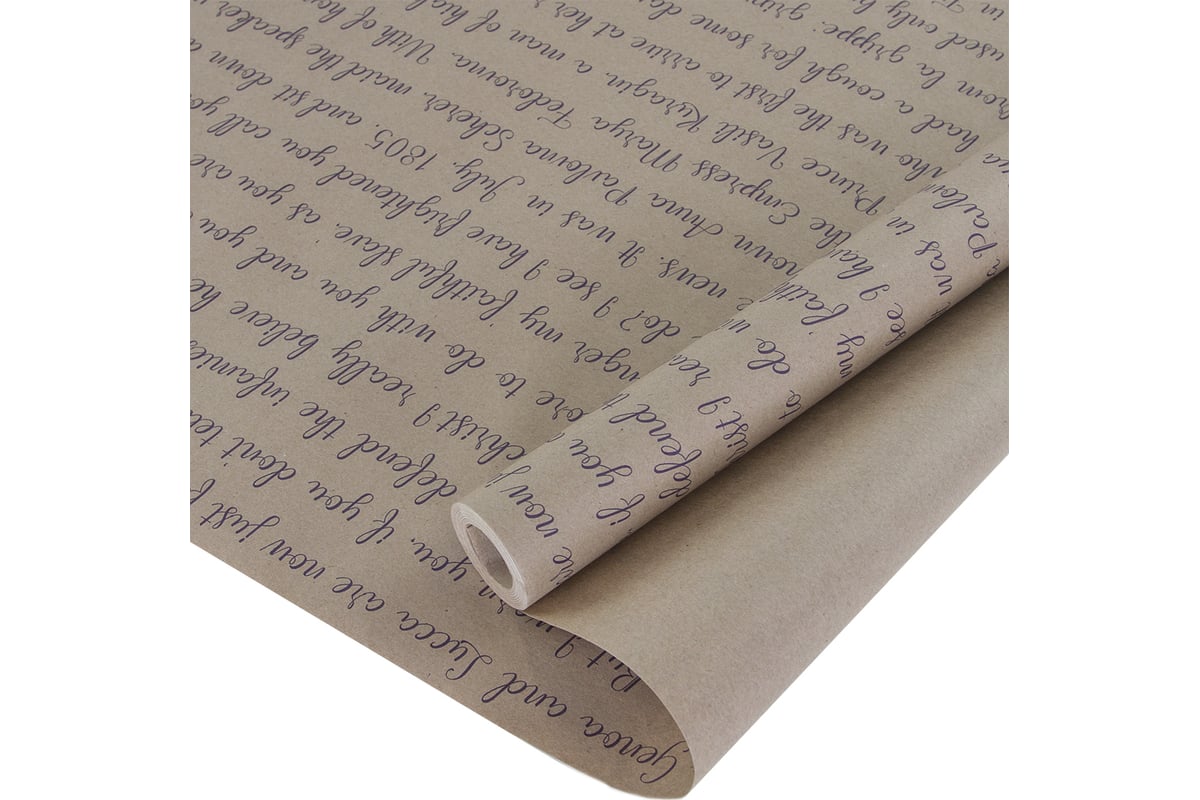 Genoa and Lucca are now just f
But I warn you, if you don't tel
defend the infamies
christ I really believe he
ore to do with you and you a
nger my faithful slave, as you
do? I see I have frightened you
e news. It was in July, 1805, and
nown Anna Pavlovna Scherer, maid
the Empress Marya Fedorovna. With of
Prince Vasili Kuragin, a man of high
who was the first to arrive at her
had a cough for some da
from la grippe; grip
used only b
call you
sit down a
the speaker
are now j
if you
defend
ist I rea
to do w
my faith
see I ha
was in